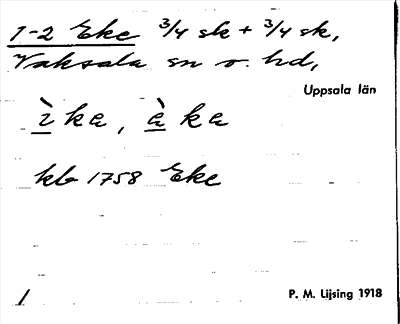 1-2 Eke 3/4 sk + 3/4 sk,
Vaksala sn o. hd,
Uppsala län
ìka, àka
kb 1758 Eke
1
P. M. Lijsing 1918